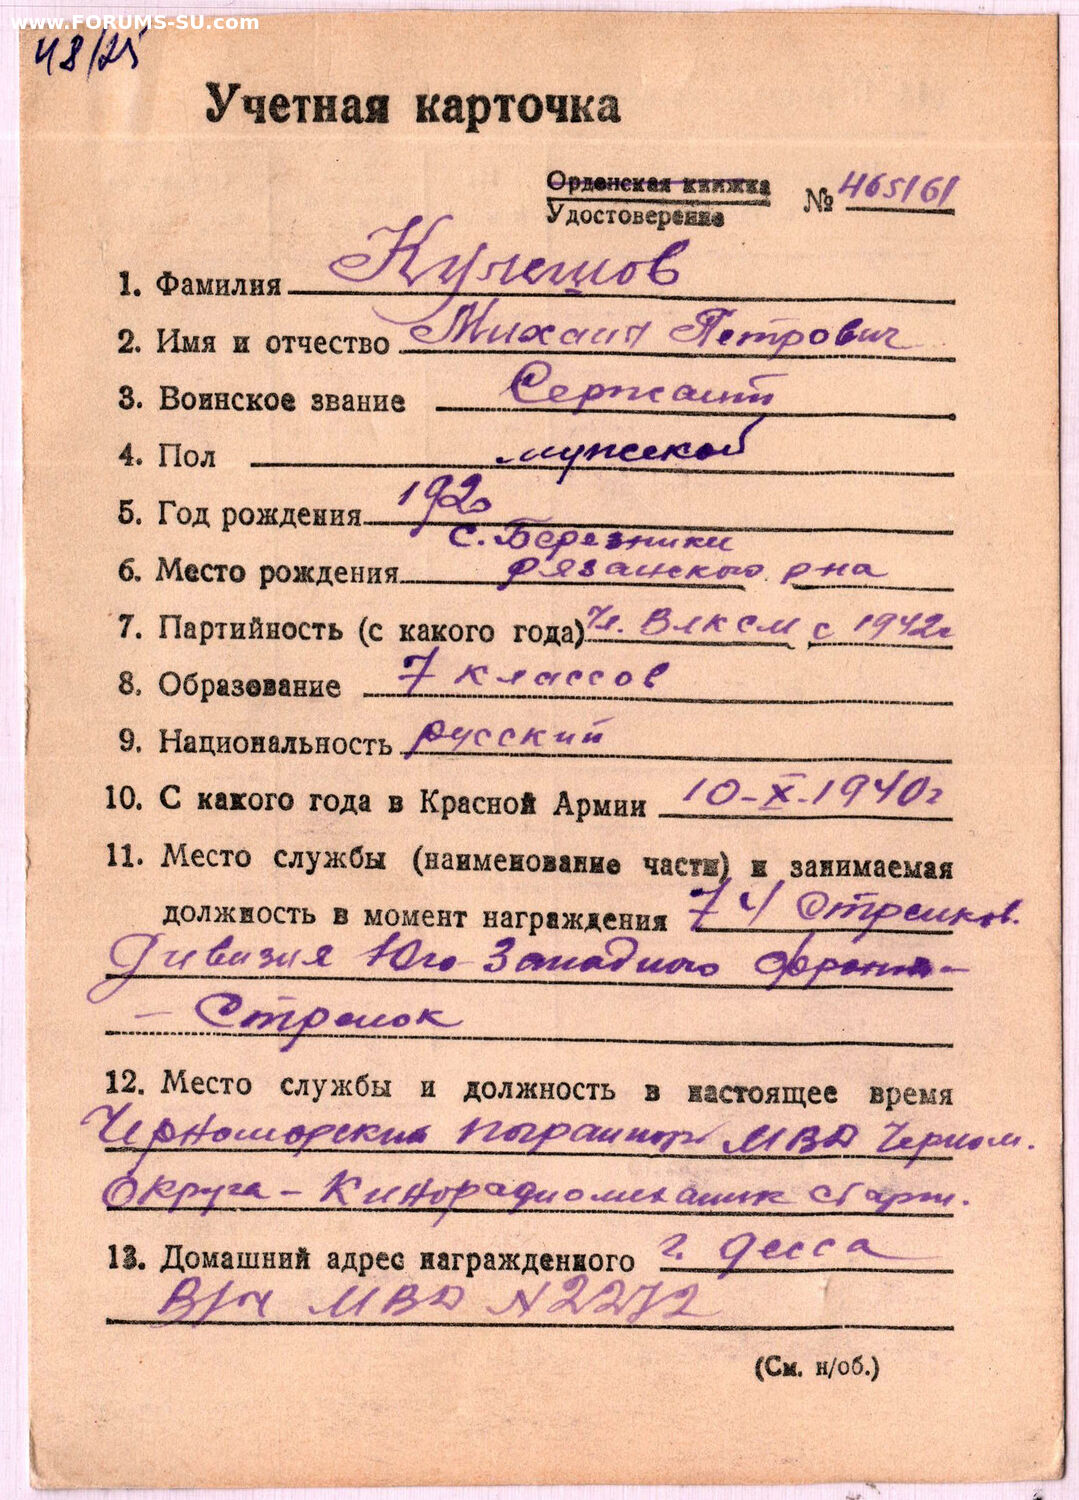 www.FORUMS-SU.com
48/25
Учетная карточка
Орденская книжка
Удостоверение
№ 465161
1. Фамилия Кулешов
2. Имя и отчество Михаил Петрович
3. Воинское звание Сержант
4. Пол мужской
5. Год рождения 1920
с. Березники
6. Место рождения Рязанского р-на
7. Партийность (с какого года) Чл. ВЛКСМ с 1942г
8. Образование 7 классов
9. Национальность русский
10. С какого года в Красной Армии 10-X-1940г
11. Место службы (наименование части) и занимаемая
должность в момент награждения 74 Стрелков.
Дивизия Юго-Западного фронта-
- Стрелок
12. Место службы и должность в настоящее время
Черноморский МВД Черном.
Округа - Кинорадиомеханик
13. Домашний адрес награжденного г. Одесса
В/ч МВД N 2272
(См. н/об.)